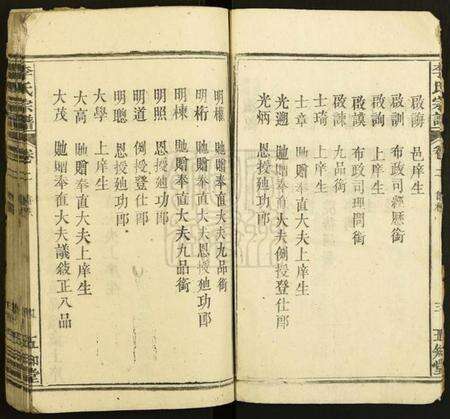 李氏宗譜
卷二
五知堂
啟誨 邑庠生
啟訓 布政司經歷銜
啟詢 上庠生
啟謨 布政司理問銜
啟諫 九品銜
士琦 上庠生
士章 馳贈奉直大夫上庠生
光遡 馳贈奉直大夫例授登仕郎
光炳 恩授廸功郎
明權 馳贈奉直大夫九品銜
明術 馳贈奉直大夫恩授廸功郎
明棟 馳贈奉直大夫九品銜
明照 恩授廸功郎
明道 例授登仕郎
明聰 恩授廸功郎
大學 上庠生
大高 馳贈奉直大夫上庠生
大茂 馳贈奉直大夫議敘正八品
李氏宗譜
卷二
五知堂